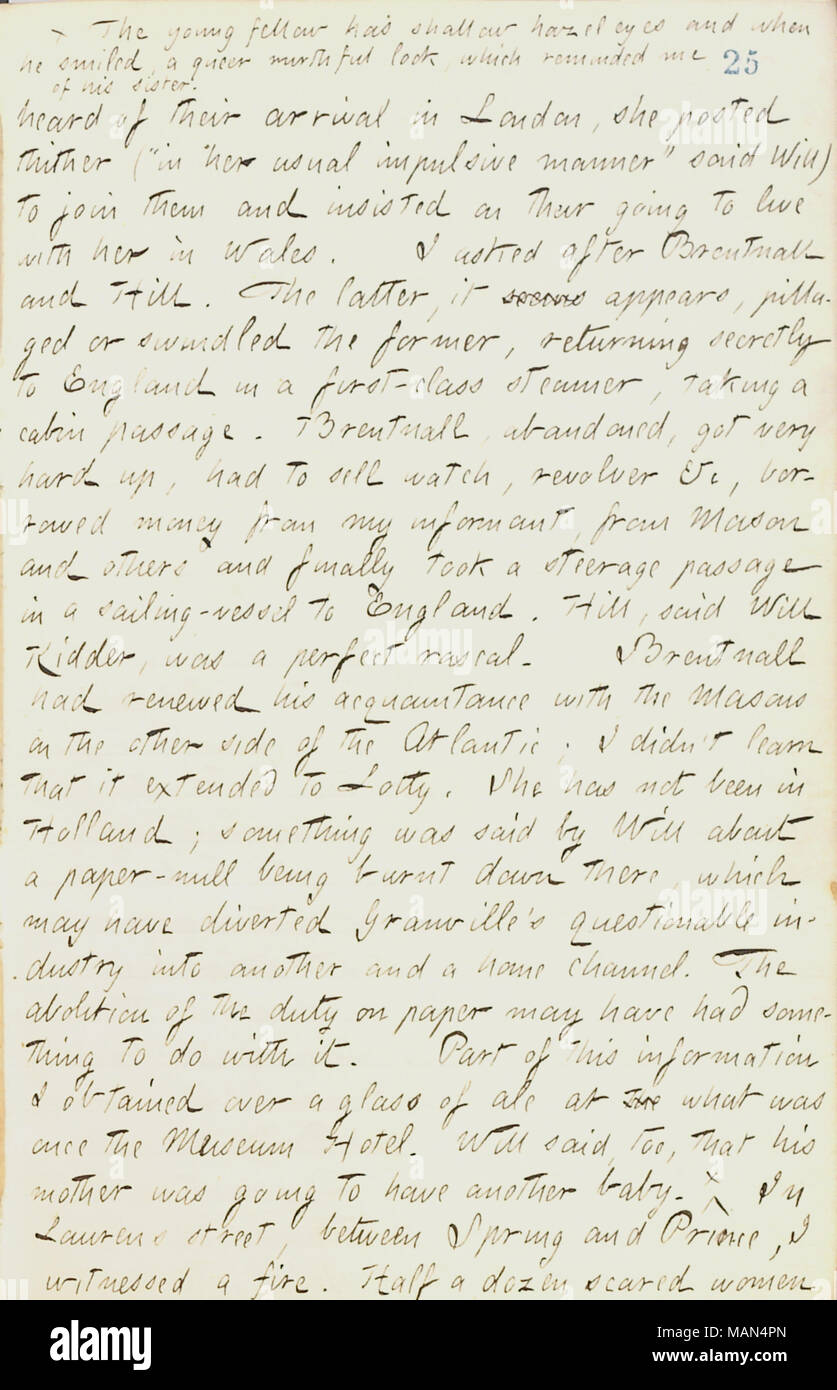 x The young fellow has shallow hazel eyes and when
he smiled, a queer mirthful look, which reminded me
of his sister.
25
heard of their arrival in London, she posted
thither ("in her usual impulsive manner" said Will)
to join them and insisted on their going to live
with her in Wales. I asked after Brentnall
and Hill. The latter, it seems appears, pilla-
ged or swindled the former, returning secretly
to England in a first-class steamer, taking a
cabin passage. Brentnall, abandoned, got very
hard up, had to sell watch, revolver &c, bor-
rowed money from my informant, from Mason
and others and finally took a steerage passage
in a sailing-vessel to England. Hill, said Will
Kidder, was a perfect rascal. Brentnall
had renewed his acquaintance with the Masons
on the other side of the Atlantic; I didn't learn
that it extended to Lotty. She has not been in
Holland; something was said by Will about
a paper-mill being burnt down there which
may have diverted Granville's questionable in-
dustry into another and a home channel. The
abolition of the duty on paper may have had some-
thing to do with it. Part of this information
I obtained over a glass of ale at the what was
once the Museum Hotel. Will said, too, that his
mother was going to have another baby. x In
Laurens street, between Spring and Prince, I
witnessed a fire. Half a dozen scared women
alamy
Image ID: MAN4PN
www.alamy.com